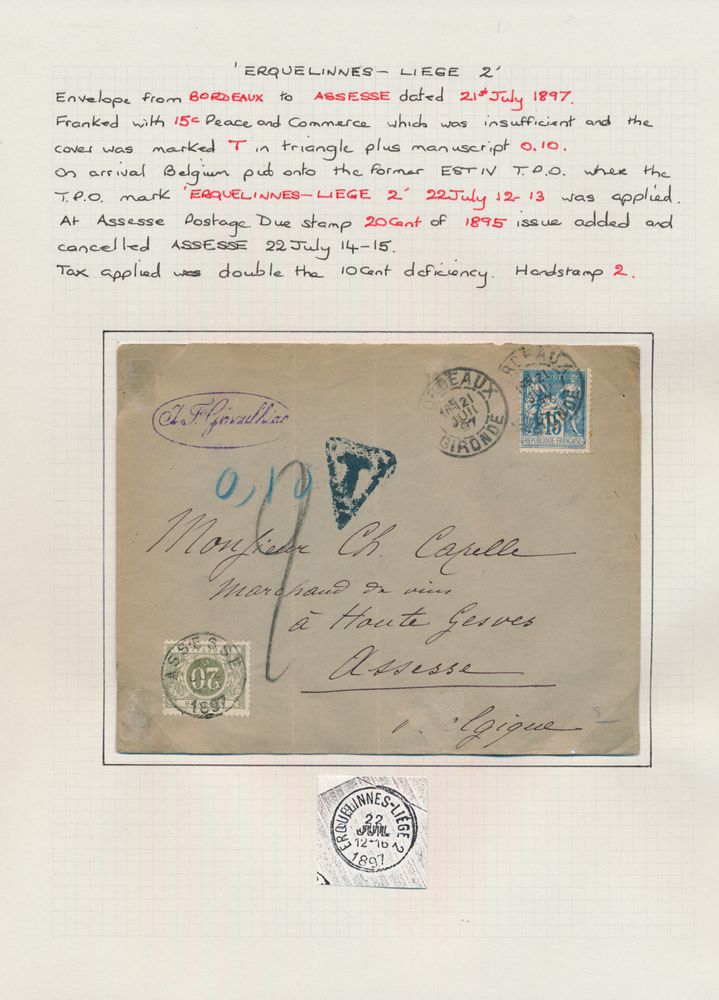 'ERQUELINNES - LIEGE 2'
Envelope from BORDEAUX to ASSESSE dated 21st July 1897.
Franked with 15c Peace and Commerce which was insufficient and the
cover was marked T in triangle plus manuscript 0.10.
On arrival Belgium put onto the former EST IV T.P.O. where the
T.P.O. mark 'ERQUELINNES - LIEGE 2' 22 July 12-13 was applied.
At Assesse Postage Due stamp 20 Cent of 1895 issue added and
cancelled ASSESSE 22 July 14-15.
Tax applied was double the 10 Cent deficiency. Handstamp 2.
RDEAUX
21
JUIL
97
GIRONDE
RDEAUX
21
POSTE
15
REPUBLIQUE FRANÇAISE
0,10
T
2
Monsieur Ch. Capelle
Marchand de vins
à Haute Gesves
Assesse
lgique
ASSESSE
20
1897
ERQUELINNES-LIÉGE 2
22
JUIL
1897